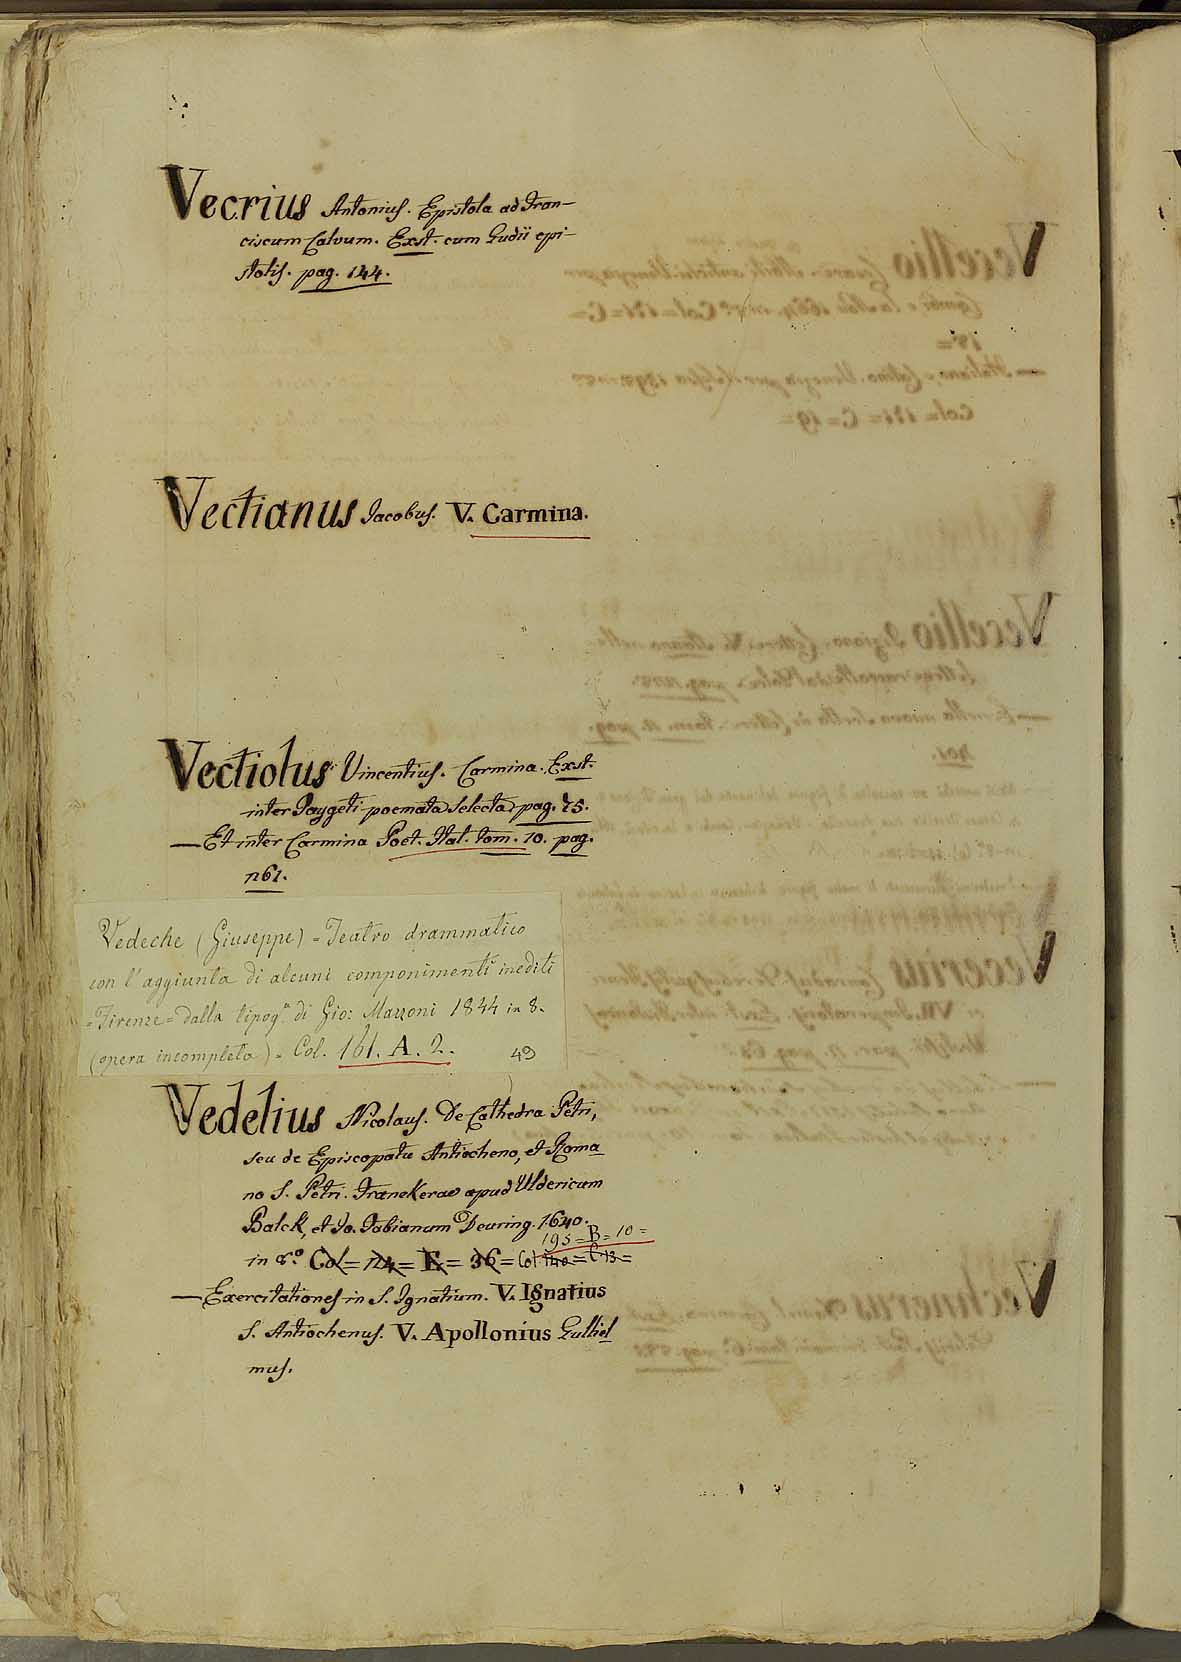 Vecrius Antonius. Epistola ad Fran-
ciscum Calvum. Exst. cum Gudii epi-
stolis. pag. 144.
Vectianus Jacobus. V. Carmina.
Vectiolus Vincentius. Carmina. Exst.
inter Paygeti poemata selecta pag. 75.
— Et inter Carmina Poet. Ital. tom. 10. pag.
Vedeche (Giuseppe) = Teatro drammatico
con l'aggiunta di alcuni componimenti inediti
= Firenze = dalla tipog.ª di Gio: Mazzoni 1844 in 8.
(opera incompleta) = Col. 161. A. 2. 49
Vedelius Nicolaus. De Cathedra Petri,
seu de Episcopatu Antiocheno, et Roma
no S. Petri. Franekerae apud Uldericum
Balck, et Jo. Fabianum Deuring. 1640.
195 = B = 10 =
in 8.º Col = 124 = E = 36 = Col 140 = C 13 =
— Exercitationes in S. Ignatium. V. Ignatius
S. Antiochenus. V. Apollonius Guliel
mus.